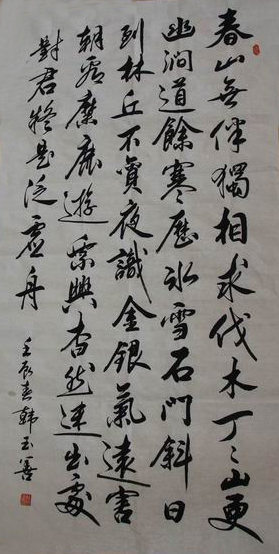 春山無伴獨相求伐木丁丶山更
幽澗道餘寒歷冰雪石門斜日
到林丘不貪夜識金銀氣遠害
朝看麋鹿遊乘興杳然迷出處
對君疑是泛虛舟
壬辰春韓玉善